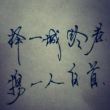 择一城终老
携一人白首